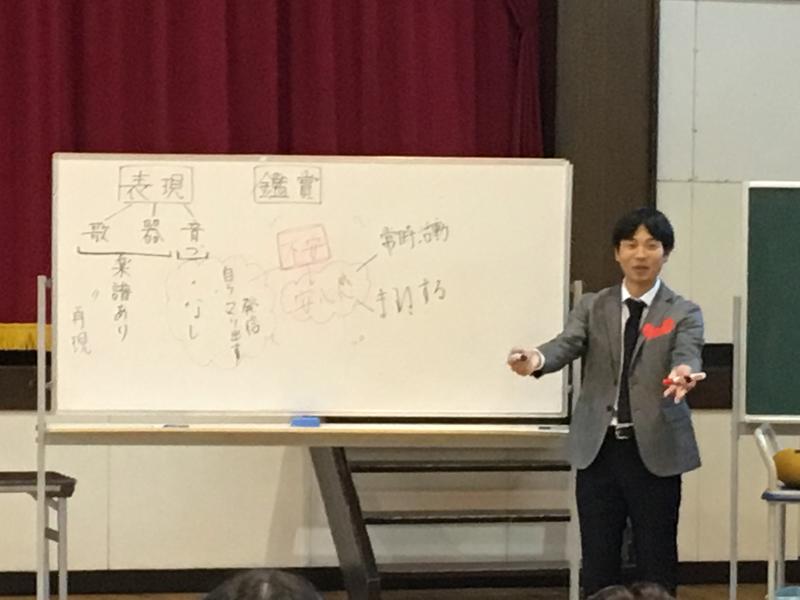 表現
鑑賞
歌 器 音
楽譜あり
〃 なし
再現
自分でつくり出す
発信
不安
安心
常時活動
まねする